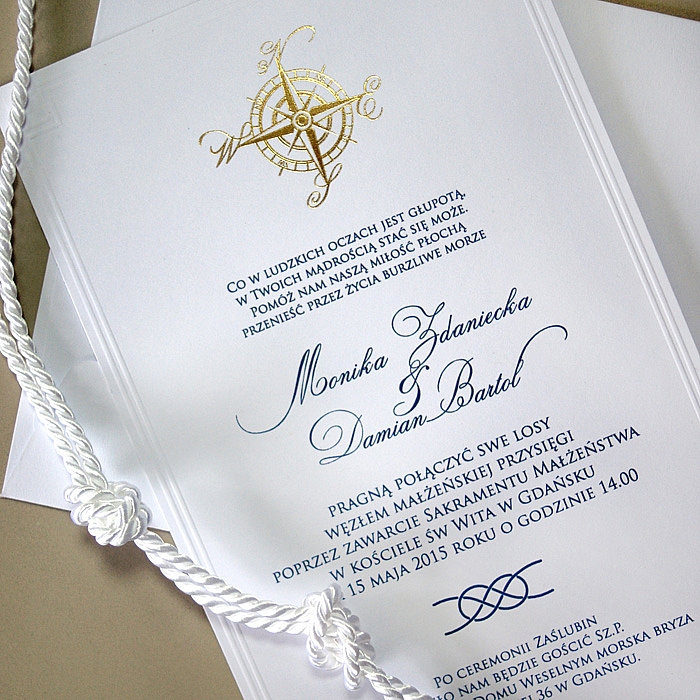 N
W E
S
Co w ludzkich oczach jest głupotą,
w Twoich mądrością stać się może.
Pomóż nam naszą miłość płochą
przenieść przez życia burzliwe morze
Monika Zdaniecka
&
Damian Bartol
pragną połączyć swe losy
węzłem małżeńskiej przysięgi
poprzez zawarcie Sakramentu Małżeństwa
w kościele św Wita w Gdańsku
15 maja 2015 roku o godzinie 14.00
po ceremonii Zaślubin
nam będzie gościć Sz.P.
Weselnym Morska Bryza
w Gdańsku.